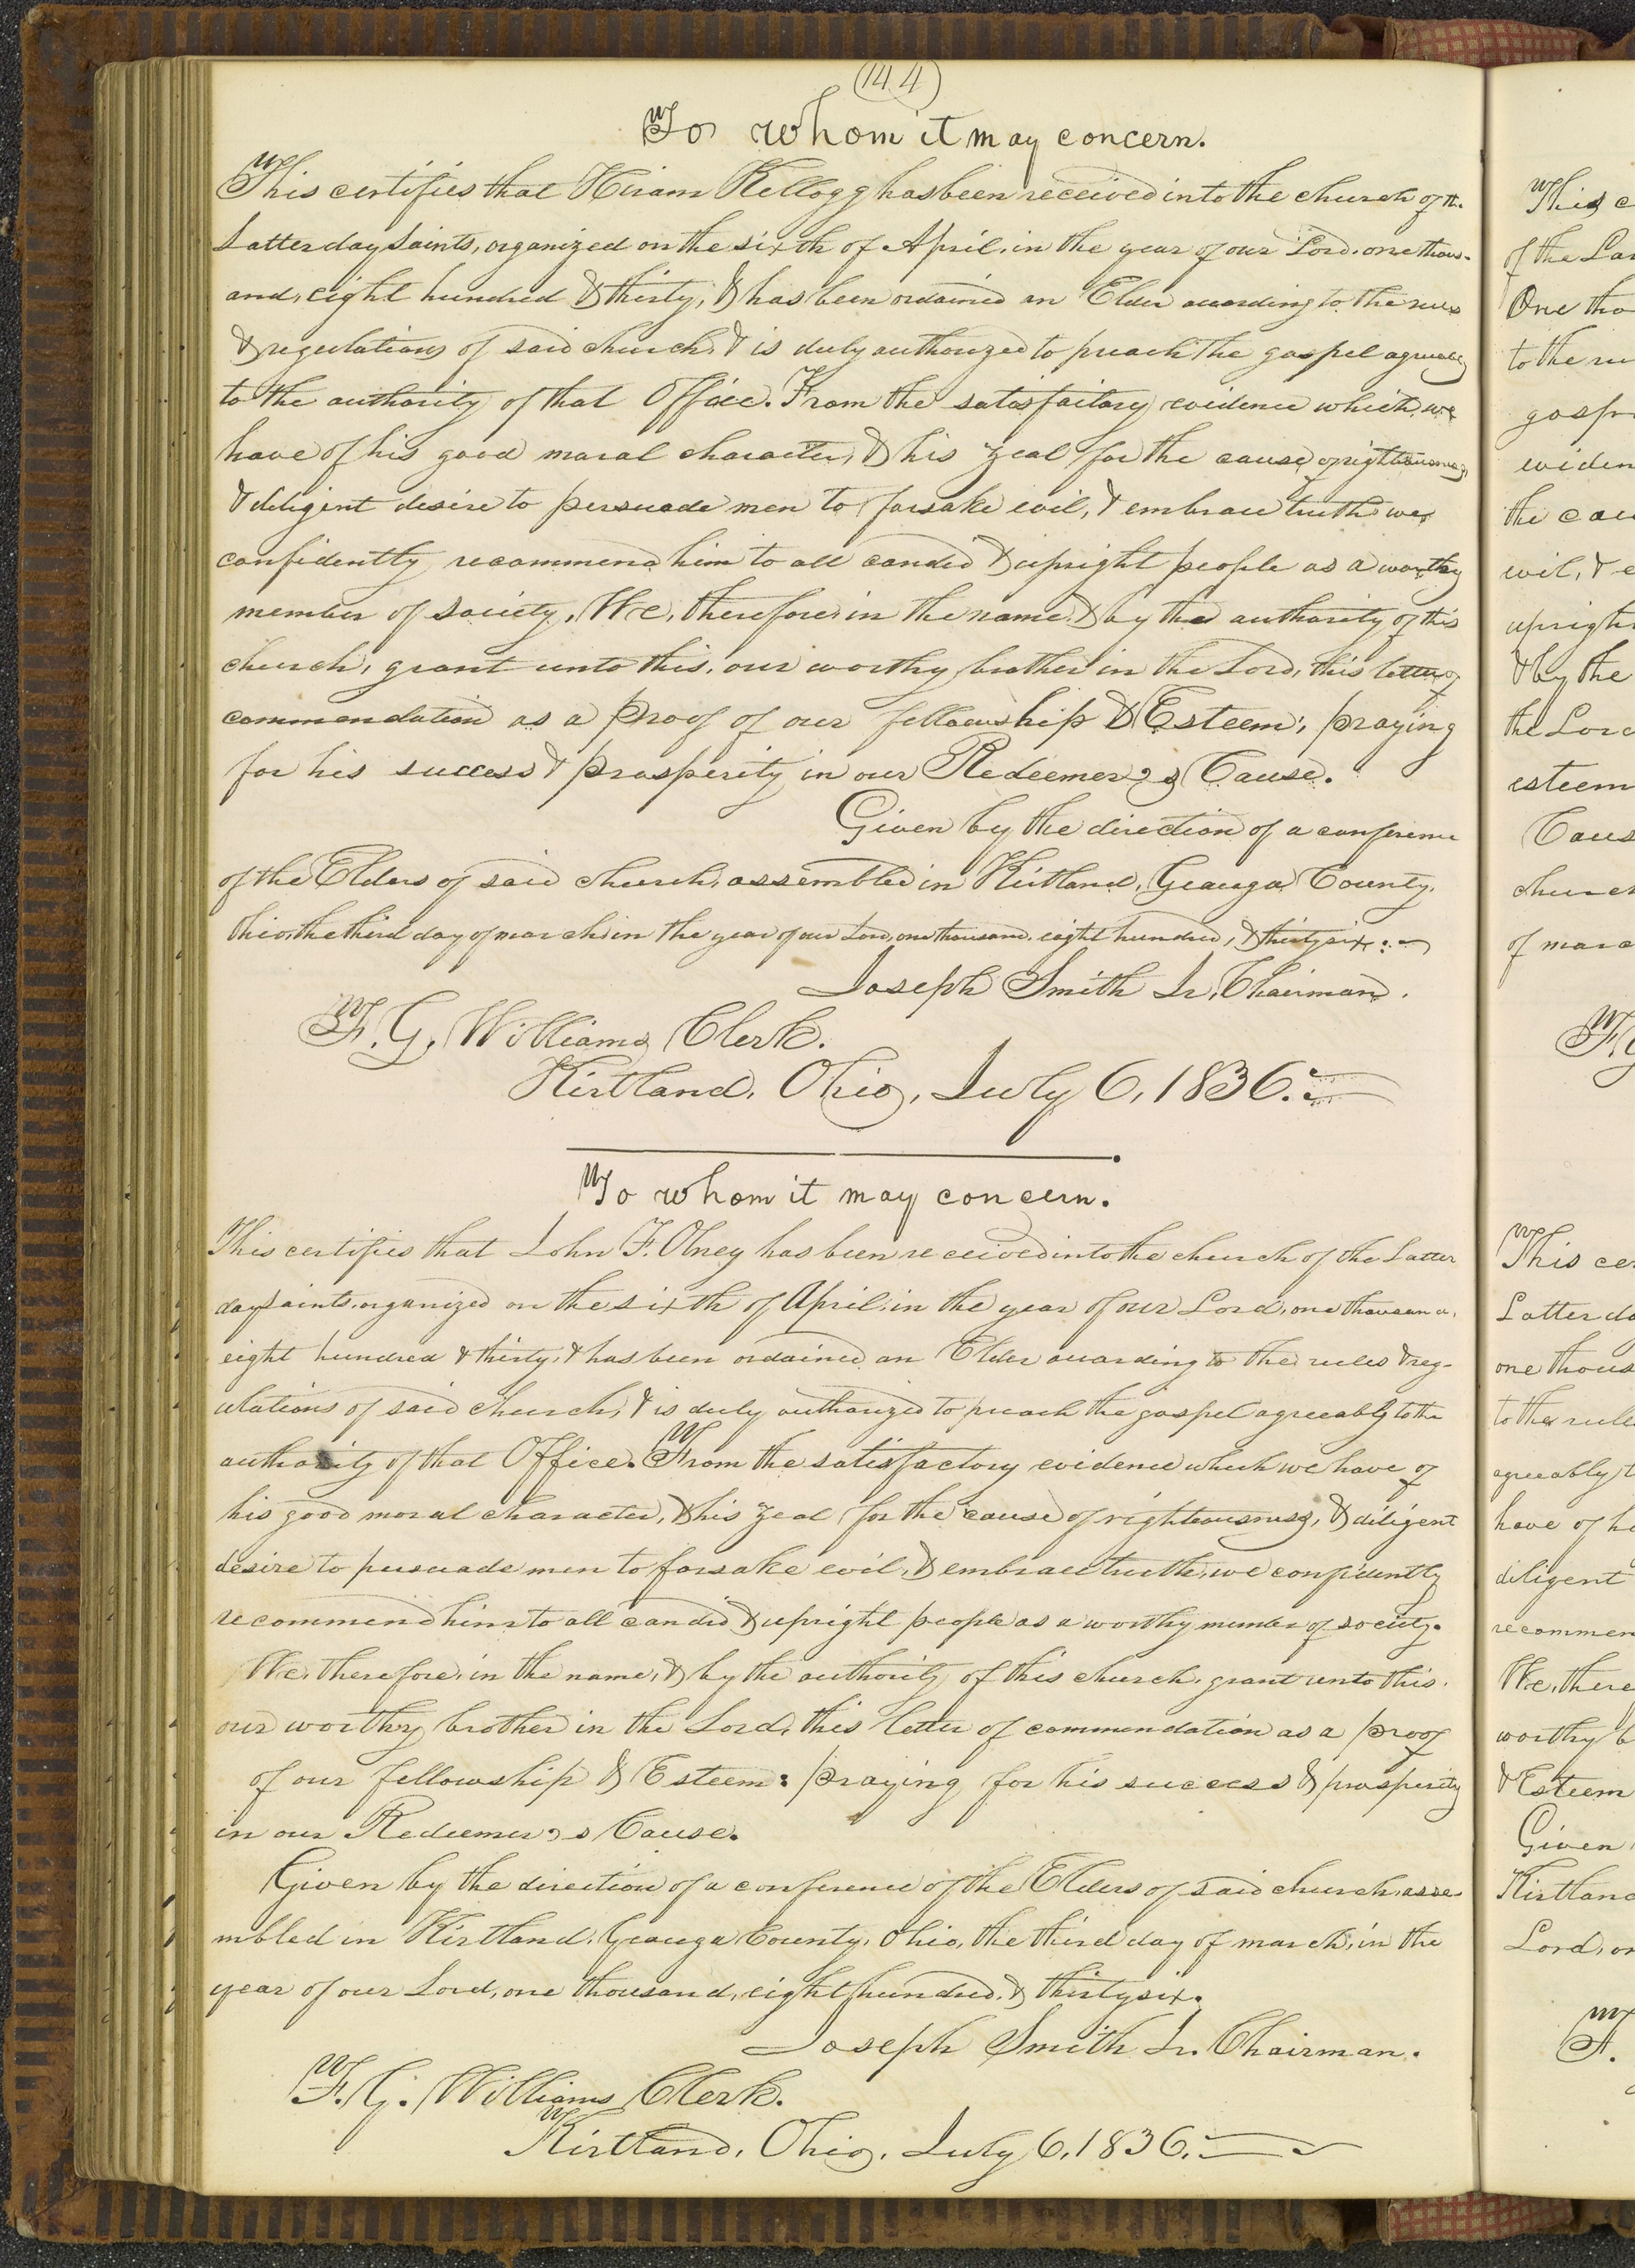 (144)
To whom it may concern.
This certifies that Hiram Kellogg has been received into the church of th.
Latter day Saints, organized on the sixth of April, in the year of our Lord, one thous-
and, eight hundred & thirty, & has been ordained an Elder according to the rules
& regulations of said church, & is duly authorized to preach the gospel agreeably
to the authority of that Office. From the satisfactory evidence which we
have of his good moral character, & his zeal for the cause of righteousness,
& diligent desire to persuade men to forsake evil, & embrace truth, we,
confidently recommend him to all candid & upright people as a worthy
member of society, We, therefore, in the name, & by the authority of this
church, grant unto this, our worthy brother in the Lord, this letter of
commendation as a proof of our fellowship & Esteem; praying
for his success & prosperity in our Redeemer's Cause.
Given by the direction of a conference
of the Elders of said church, assembled in Kirtland, Geauga County,
Ohio, the third day of march, in the year of our Lord, one thousand, eight hundred, & thirty six:~
Joseph Smith Jr, Chairman.
F. G. Williams Clerk.
Kirtland, Ohio, July 6, 1836.
To whom it may concern.
This certifies that John F. Olney has been received into the church of the Latter
day Saints, organized on the sixth of April, in the year of our Lord, one thousand,
eight hundred & thirty, & has been ordained an Elder according to the rules & reg-
ulations of said church, & is duly authorized to preach the gospel agreeably to the
authority of that Office. From the satisfactory evidence which we have of
his good moral character, & his zeal for the cause of righteousness, & diligent
desire to persuade men to forsake evil, & embrace truth, we confidently
recommend him to all candid & upright people as a worthy member of society.
We, therefore, in the name, & by the authority of this church, grant unto this,
our worthy brother in the Lord, this letter of commendation as a proof
of our fellowship & Esteem: praying for his success & prosperity
in our Redeemer's Cause.
Given by the direction of a conference of the Elders of said church, asse-
mbled in Kirtland, Geauga County, Ohio, the third day of march, in the
year of our Lord, one thousand, eight hundred, & thirty six.
Joseph Smith Jr. Chairman.
F. G. Williams Clerk.
Kirtland, Ohio, July 6, 1836.
This c
of the Lat
One tho
to the ru
gospe
eviden
the cau
evil, & e
upright
& by the
the Lord
esteem
Caus
church
of marc
This ce
Latter da
one thous
to the rule
agreeably t
have of h
diligent
recommen
We, there
worthy b
& Esteem
Given
Kirtland
Lord, on
F.